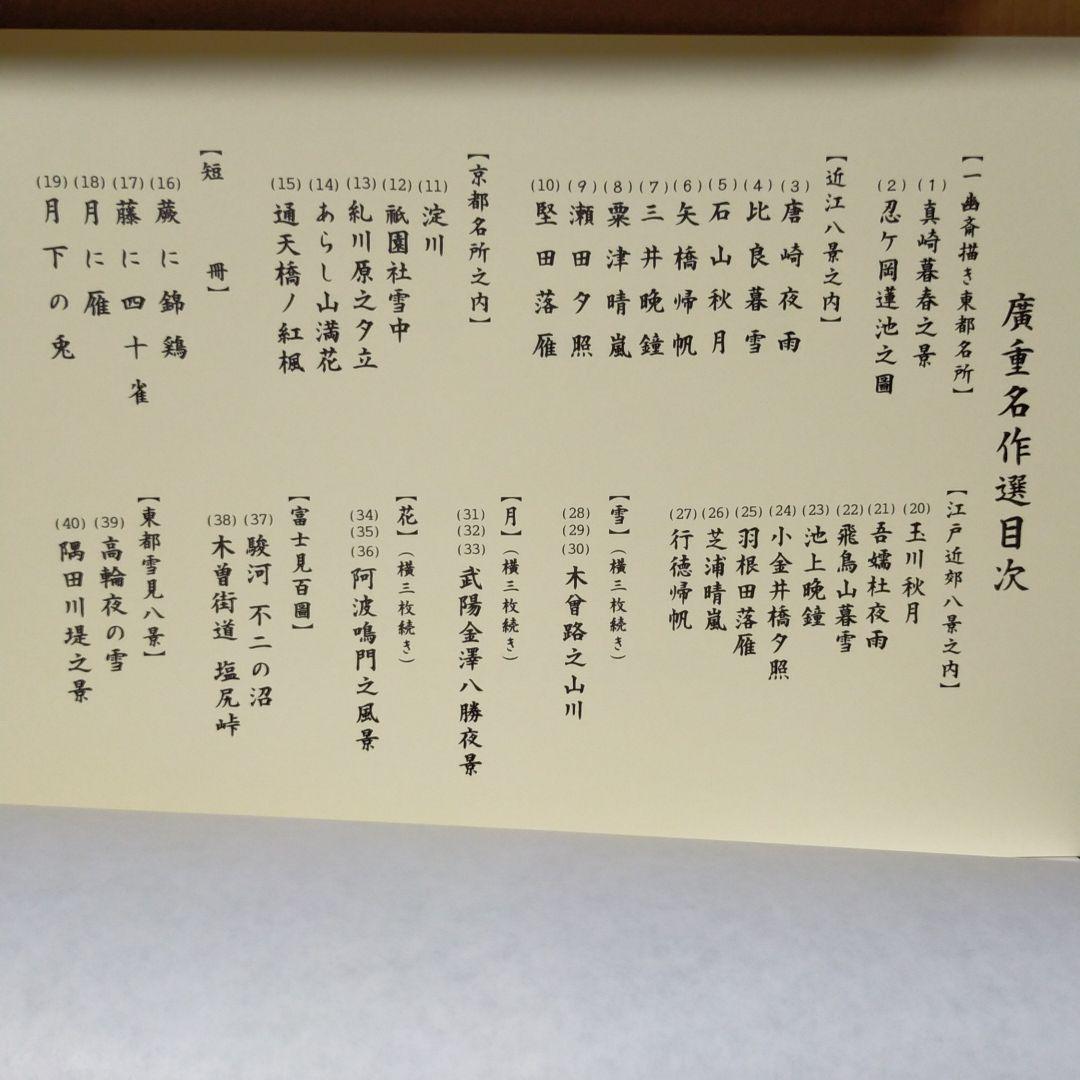 廣重名作選目次
【一幽斎描き東都名所】
(1) 真崎暮春之景
(2) 忍ケ岡蓮池之圖
【近江八景之内】
(3) 唐崎夜雨
(4) 比良暮雪
(5) 石山秋月
(6) 矢橋帰帆
(7) 三井晩鐘
(8) 粟津晴嵐
(9) 瀬田夕照
(10) 堅田落雁
【京都名所之内】
(11) 淀川
(12) 祇園社雪中
(13) 糺川原之夕立
(14) あらし山満花
(15) 通天橋ノ紅楓
【短冊】
(16) 蕨に錦鶏
(17) 藤に四十雀
(18) 月に雁
(19) 月下の兎
【江戸近郊八景之内】
(20) 玉川秋月
(21) 吾嬬杜夜雨
(22) 飛鳥山暮雪
(23) 池上晩鐘
(24) 小金井橋夕照
(25) 羽根田落雁
(26) 芝浦晴嵐
(27) 行徳帰帆
【雪】(横三枚続き)
(28)(29)(30) 木曾路之山川
【月】(横三枚続き)
(31)(32)(33) 武陽金澤八勝夜景
【花】(横三枚続き)
(34)(35)(36) 阿波鳴門之風景
【富士見百圖】
(37) 駿河 不二の沼
(38) 木曽街道 塩尻峠
【東都雪見八景】
(39) 高輪夜の雪
(40) 隅田川堤之景